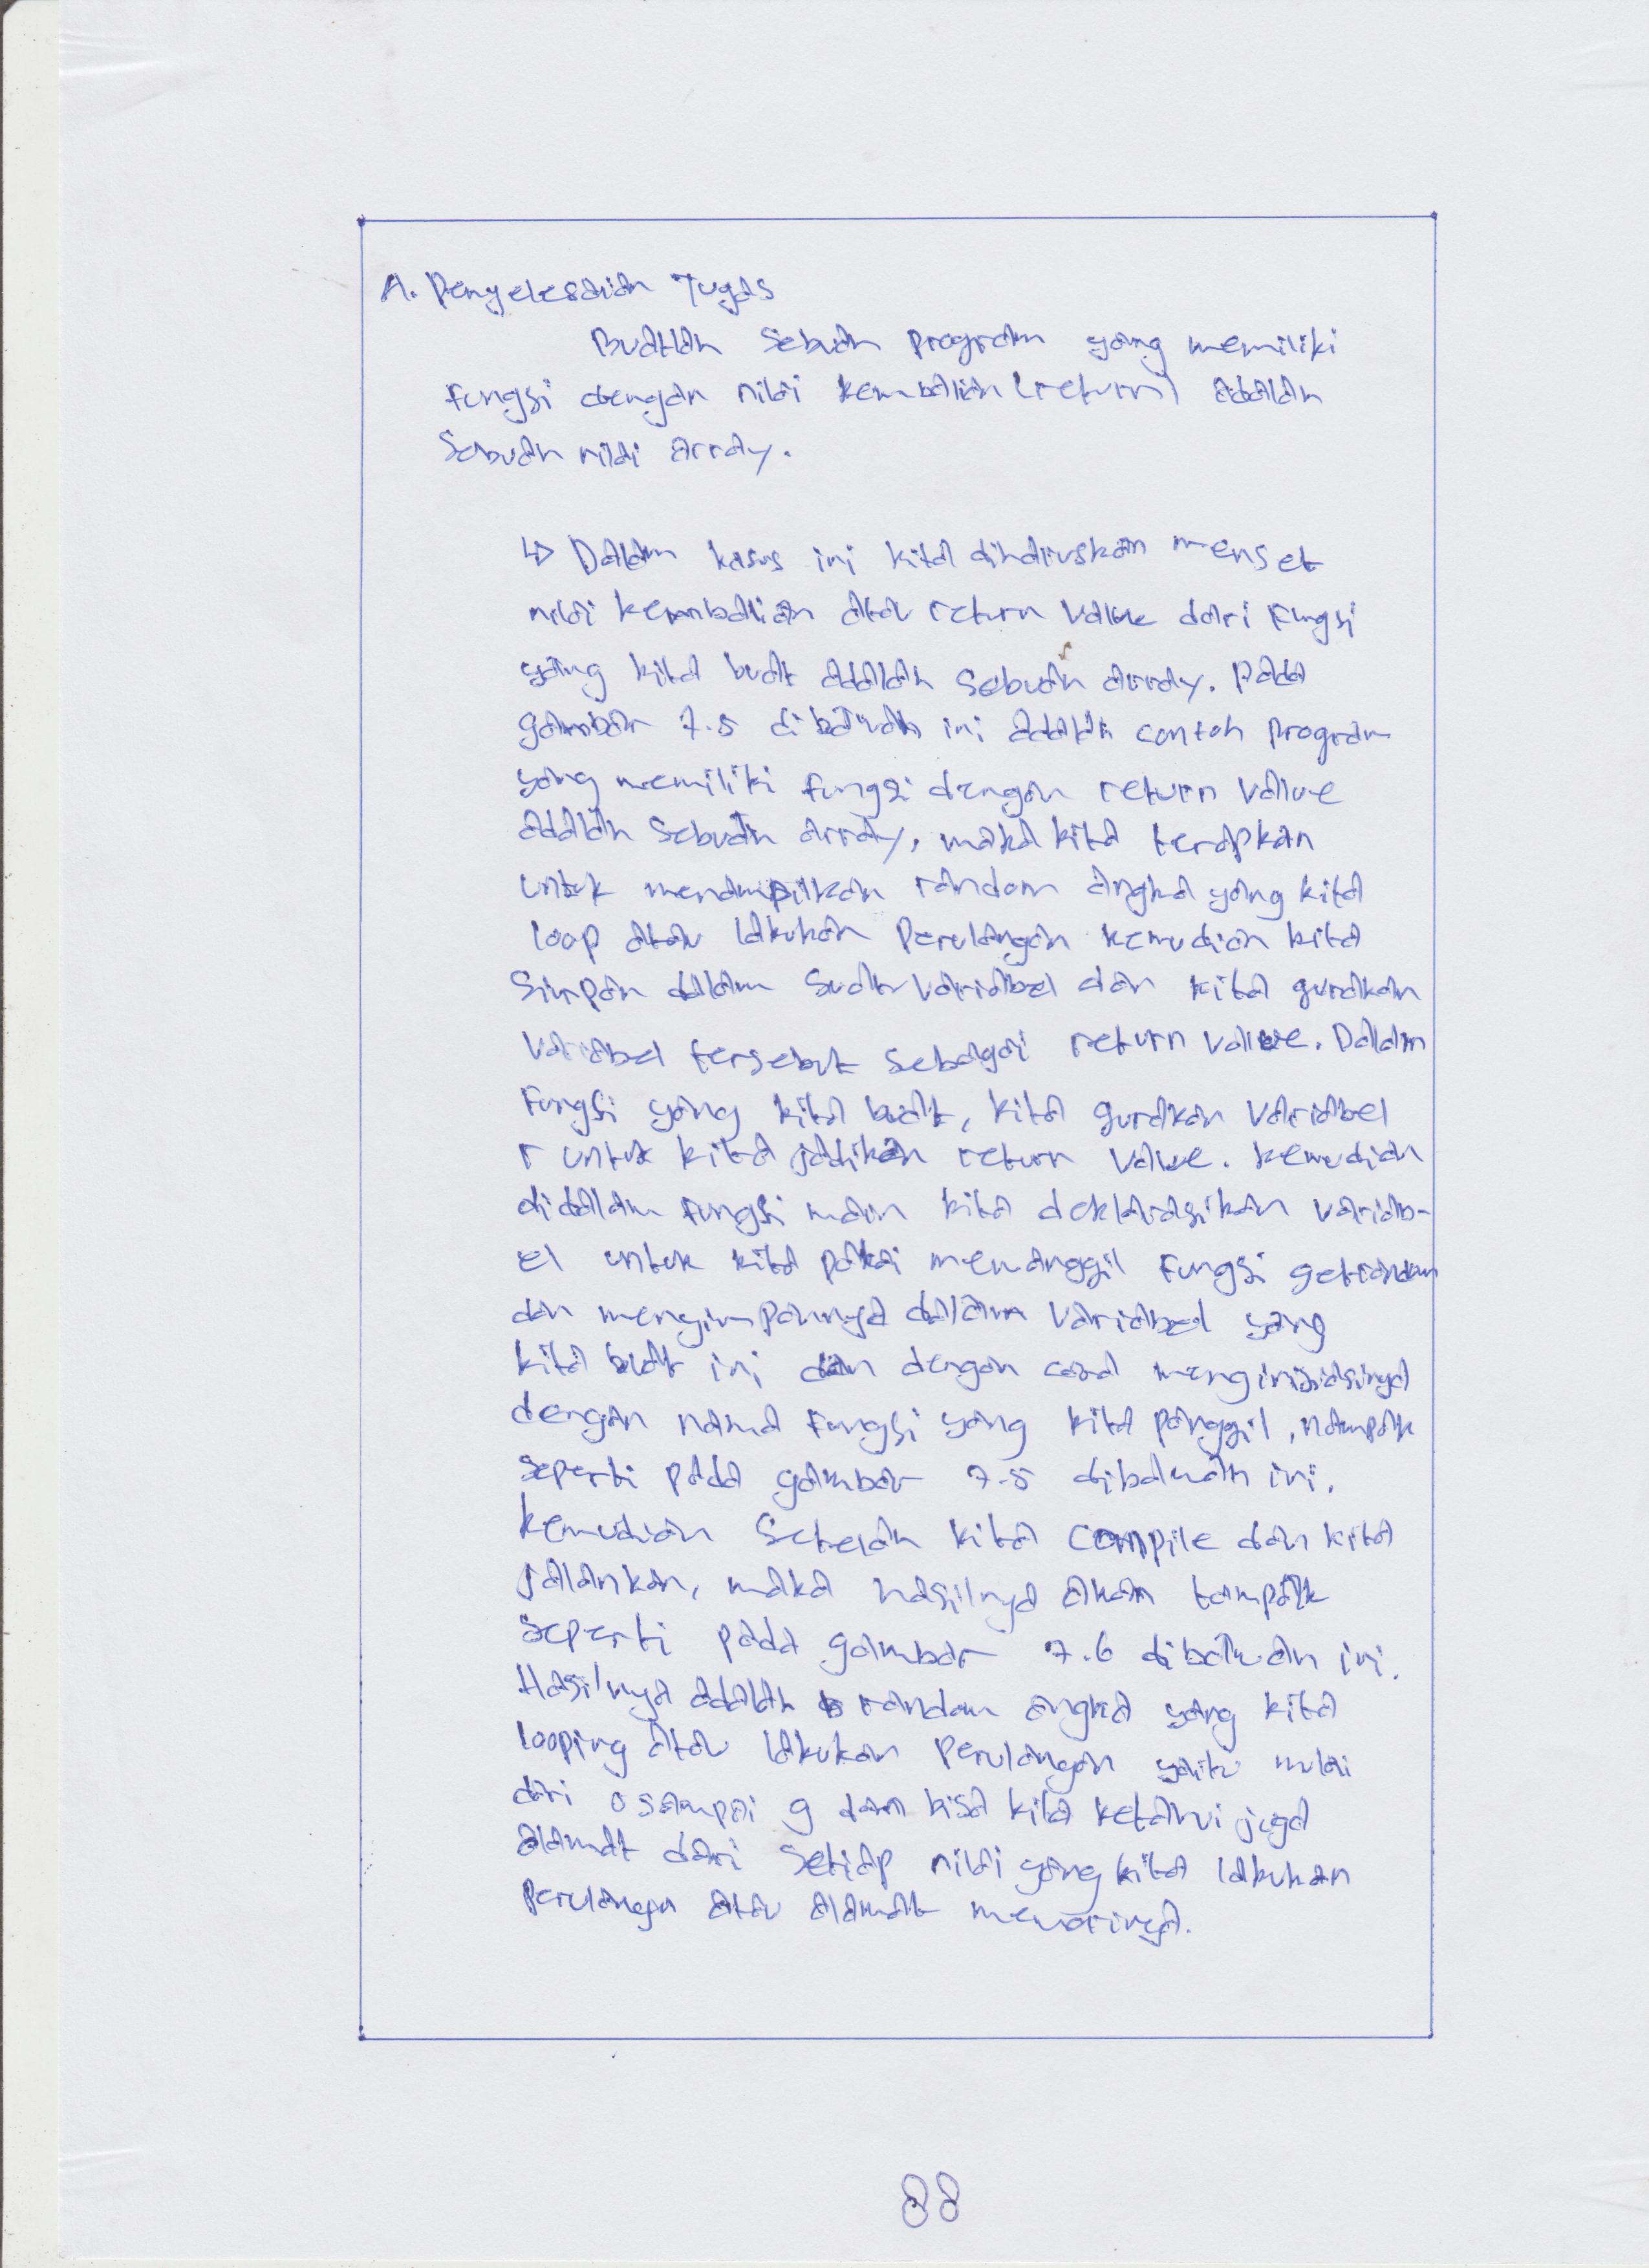 A. Penyelesaian Tugas
Buatlah sebuah program yang memiliki
fungsi dengan nilai kembalian (return) adalah
sebuah nilai array.
↳ Dalam kasus ini kita diharuskan menset
nilai kembalian atau return value dari fungsi
yang kita buat adalah sebuah array. Pada
gambar 7.5 dibawah ini adalah contoh program
yang memiliki fungsi dengan return value
adalah sebuah array, maka kita terapkan
untuk menampilkan random angka yang kita
loop atau lakukan perulangan kemudian kita
simpan dalam suatu variabel dan kita gunakan
variabel tersebut sebagai return value. Dalam
fungsi yang kita buat, kita gunakan variabel
r untuk kita jadikan return value. kemudian
didalam fungsi main kita deklarasikan variab-
el untuk kita pakai memanggil fungsi getrandom
dan menyimpannya dalam variabel yang
kita buat ini dan dengan cara menginisiasinya
dengan nama fungsi yang kita panggil, nampak
seperti pada gambar 7.5 dibawah ini.
kemudian setelah kita compile dan kita
jalankan, maka hasilnya akan tampak
seperti pada gambar 7.6 dibawah ini.
Hasilnya adalah random angka yang kita
looping atau lakukan perulangan yaitu mulai
dari 0 sampai 9 dan bisa kita ketahui juga
alamat dari setiap nilai yang kita lakukan
perulangan atau alamat memorinya.
88